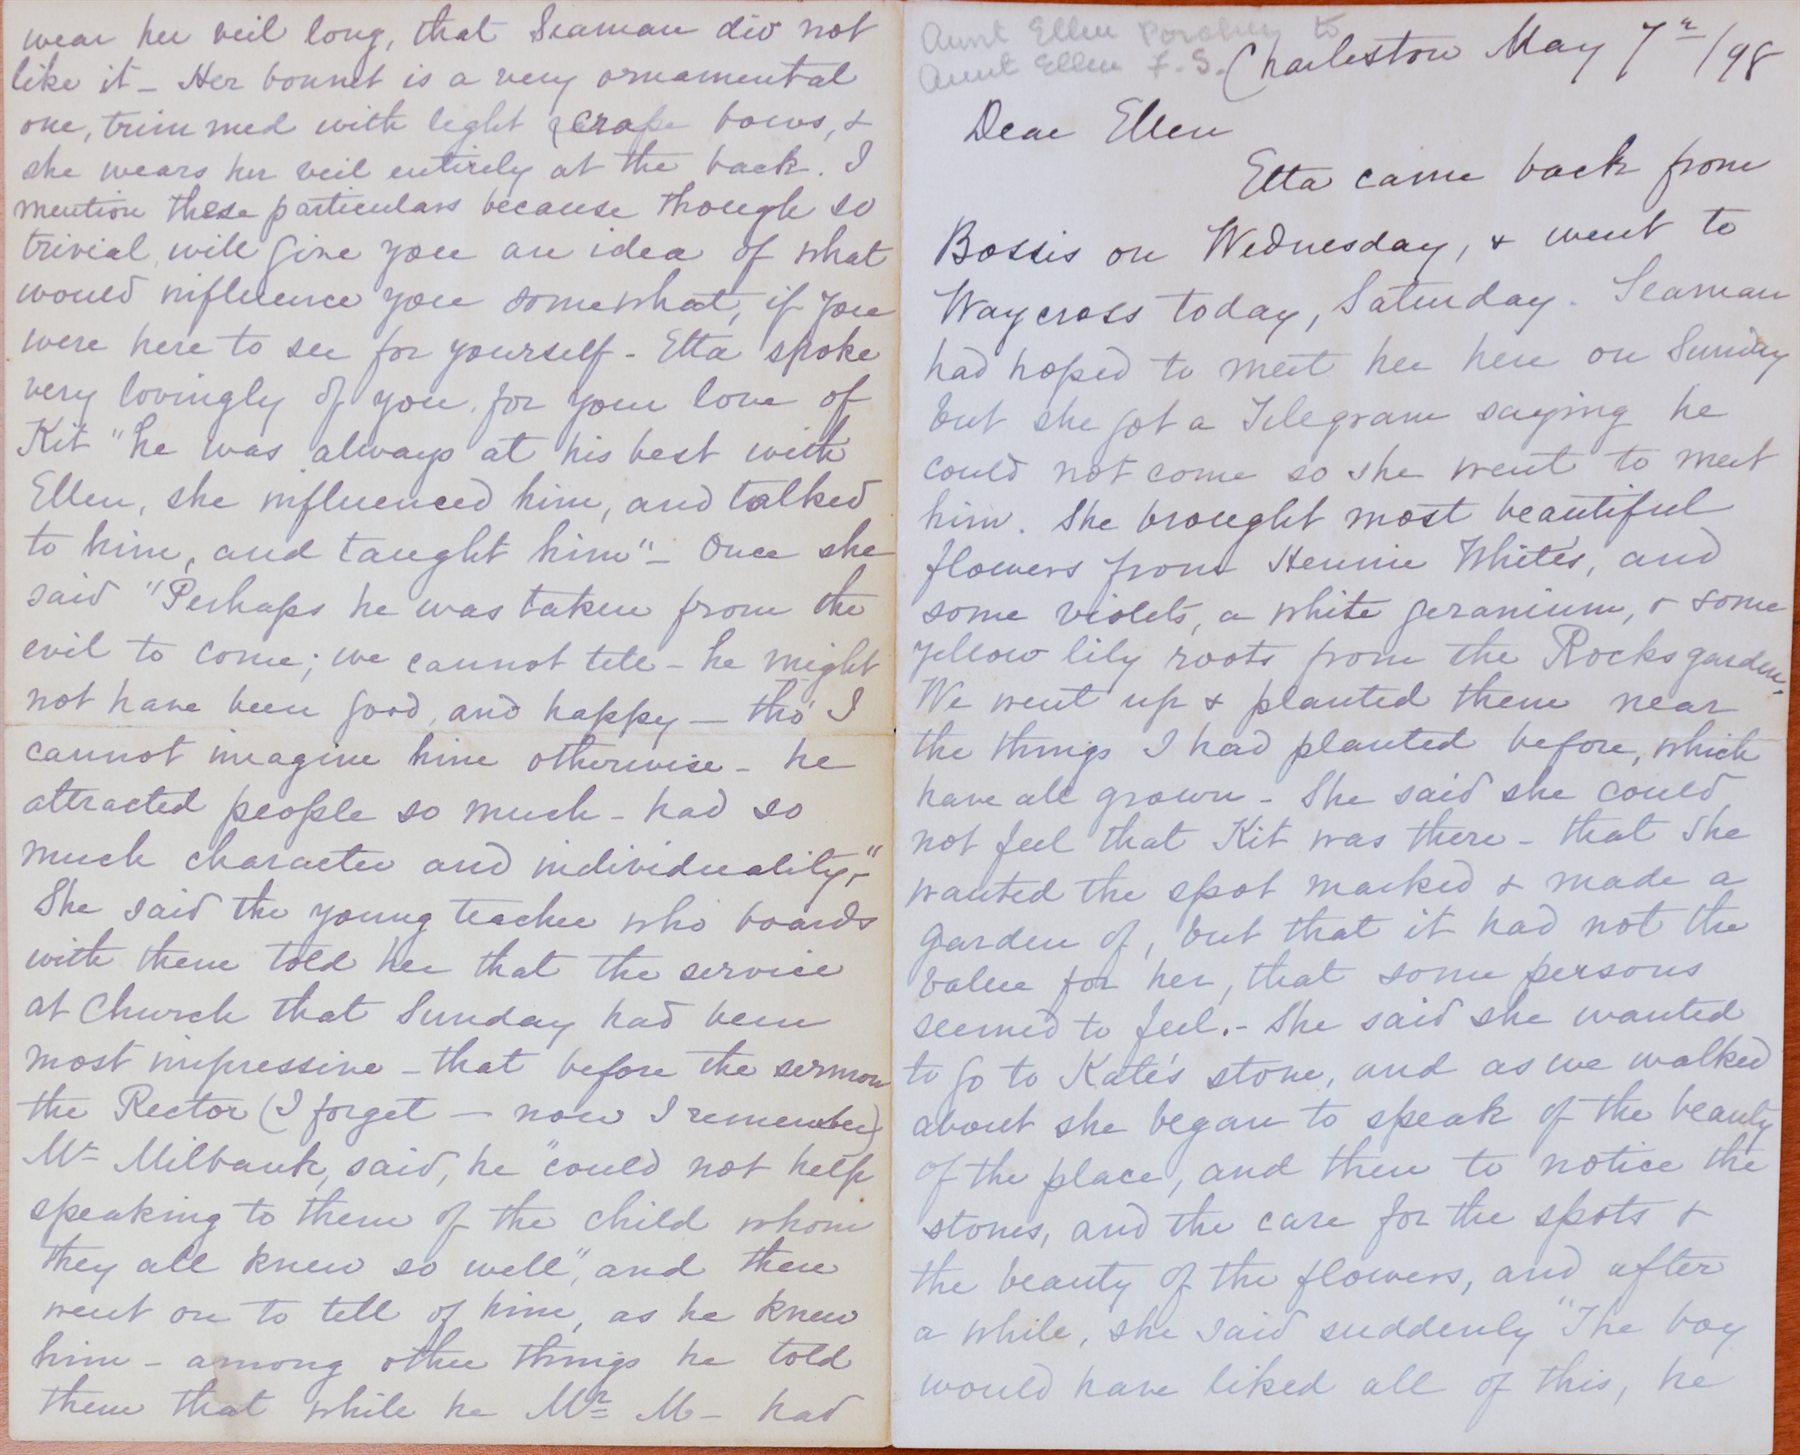 Aunt Ellen Porcher to
Aunt Ellen F. S.
Charleston May 7th/98
Dear Ellen
Etta came back from
Bossis on Wednesday, & went to
Waycross today, Saturday. Seaman
had hoped to meet her here on Sunday
but she got a Telegram saying he
could not come so she went to meet
him. She brought most beautiful
flowers from Hennie White's, and
some violets, a white geranium, & some
yellow lily roots from the Rocks garden.
We went up & planted them near
the things I had planted before, which
have all grown - She said she could
not feel that Kit was there - that she
wanted the spot marked & made a
garden of, but that it had not the
value for her, that some persons
seemed to feel. - She said she wanted
to go to Kate's stone, and as we walked
about she began to speak of the beauty
of the place, and then to notice the
stones, and the care for the spots &
the beauty of the flowers, and after
a while, she said suddenly "The boy
would have liked all of this, he
wear her veil long, that Seaman did not
like it - Her bonnet is a very ornamental
one, trimmed with light crape bows, &
she wears her veil entirely at the back. I
mention these particulars because though so
trivial will give you an idea of what
would influence you somewhat, if you
were here to see for yourself - Etta spoke
very lovingly of you, for your love of
Kit "he was always at his best with
Ellen, she influenced him, and talked
to him, and taught him" - Once she
said "Perhaps he was taken from the
evil to come; we cannot tell - he might
not have been good, and happy - tho' I
cannot imagine him otherwise - he
attracted people so much - had so
much character and individuality" -
She said the young teacher who boards
with them told her that the service
at Church that Sunday had been
most impressive - that before the sermon
the Rector (I forget - now I remember)
Mr Milbank, said, he "could not help
speaking to them of the child whom
they all knew so well", and then
went on to tell of him, as he knew
him - among other things he told
them that while he Mr M - had